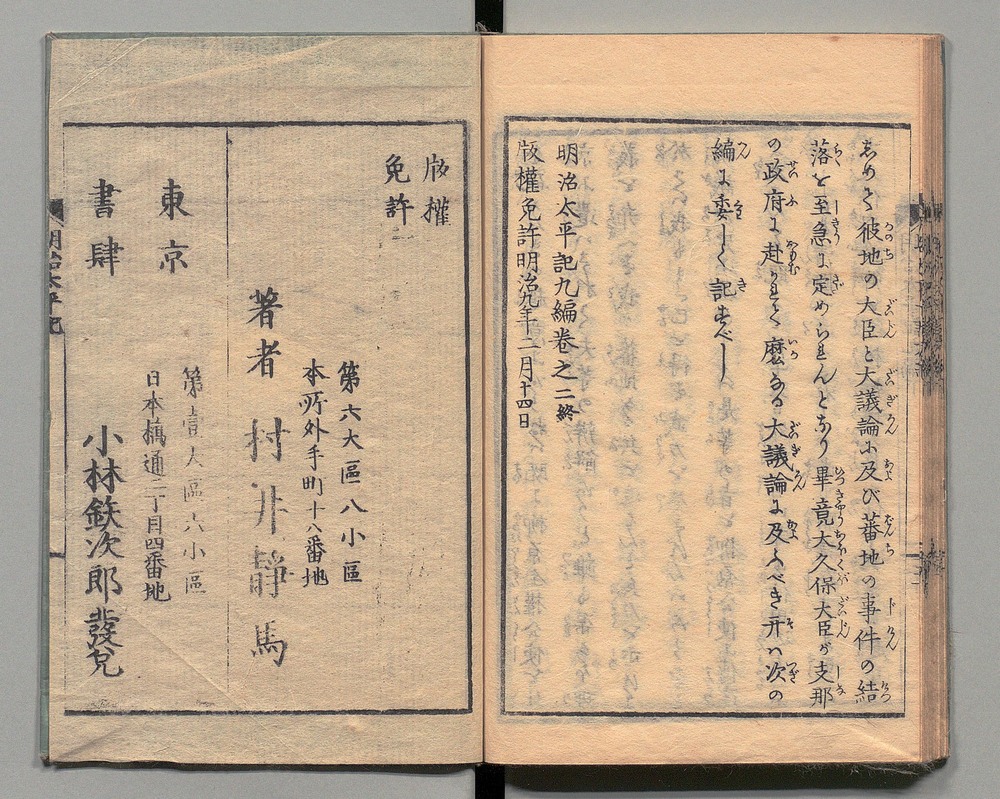 志めく彼地の大臣と大議論に及び蕃地の事件の結
落を至急に定められんとなり畢竟大久保大臣が支那
の政府に赴かれて麼なる大議論に及ぶべき开は次の
編に委しく記すべし
明治太平記九編巻之二終
版權免許明治九年二月十四日
版權
免許
第六大區八小區
本所外手町十八番地
著者 村井靜馬
東京
書肆
第壹大區六小區
日本橋通三丁目四番地
小林鉄次郎發兌
明治太平記